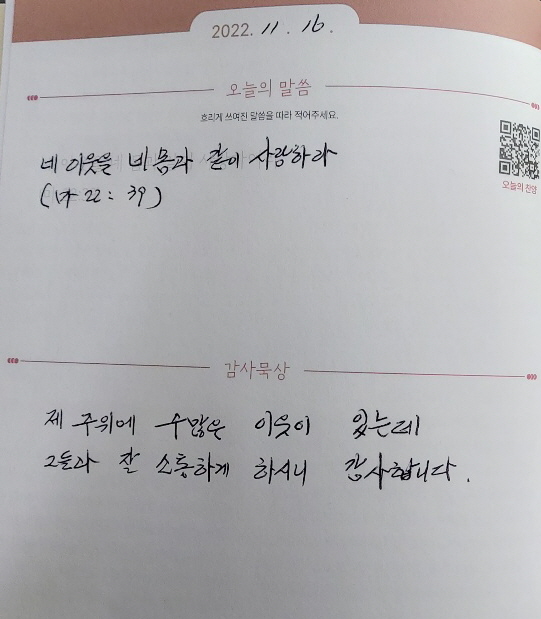 2022. 11. 16.
오늘의 말씀
흐리게 쓰여진 말씀을 따라 적어주세요.
네 이웃을 네 몸과 같이 사랑하라
(마 22 : 39)
오늘의 찬양
감사묵상
제 주위에 수많은 이웃이 있는데
그들과 잘 소통하게 하시니 감사합니다.